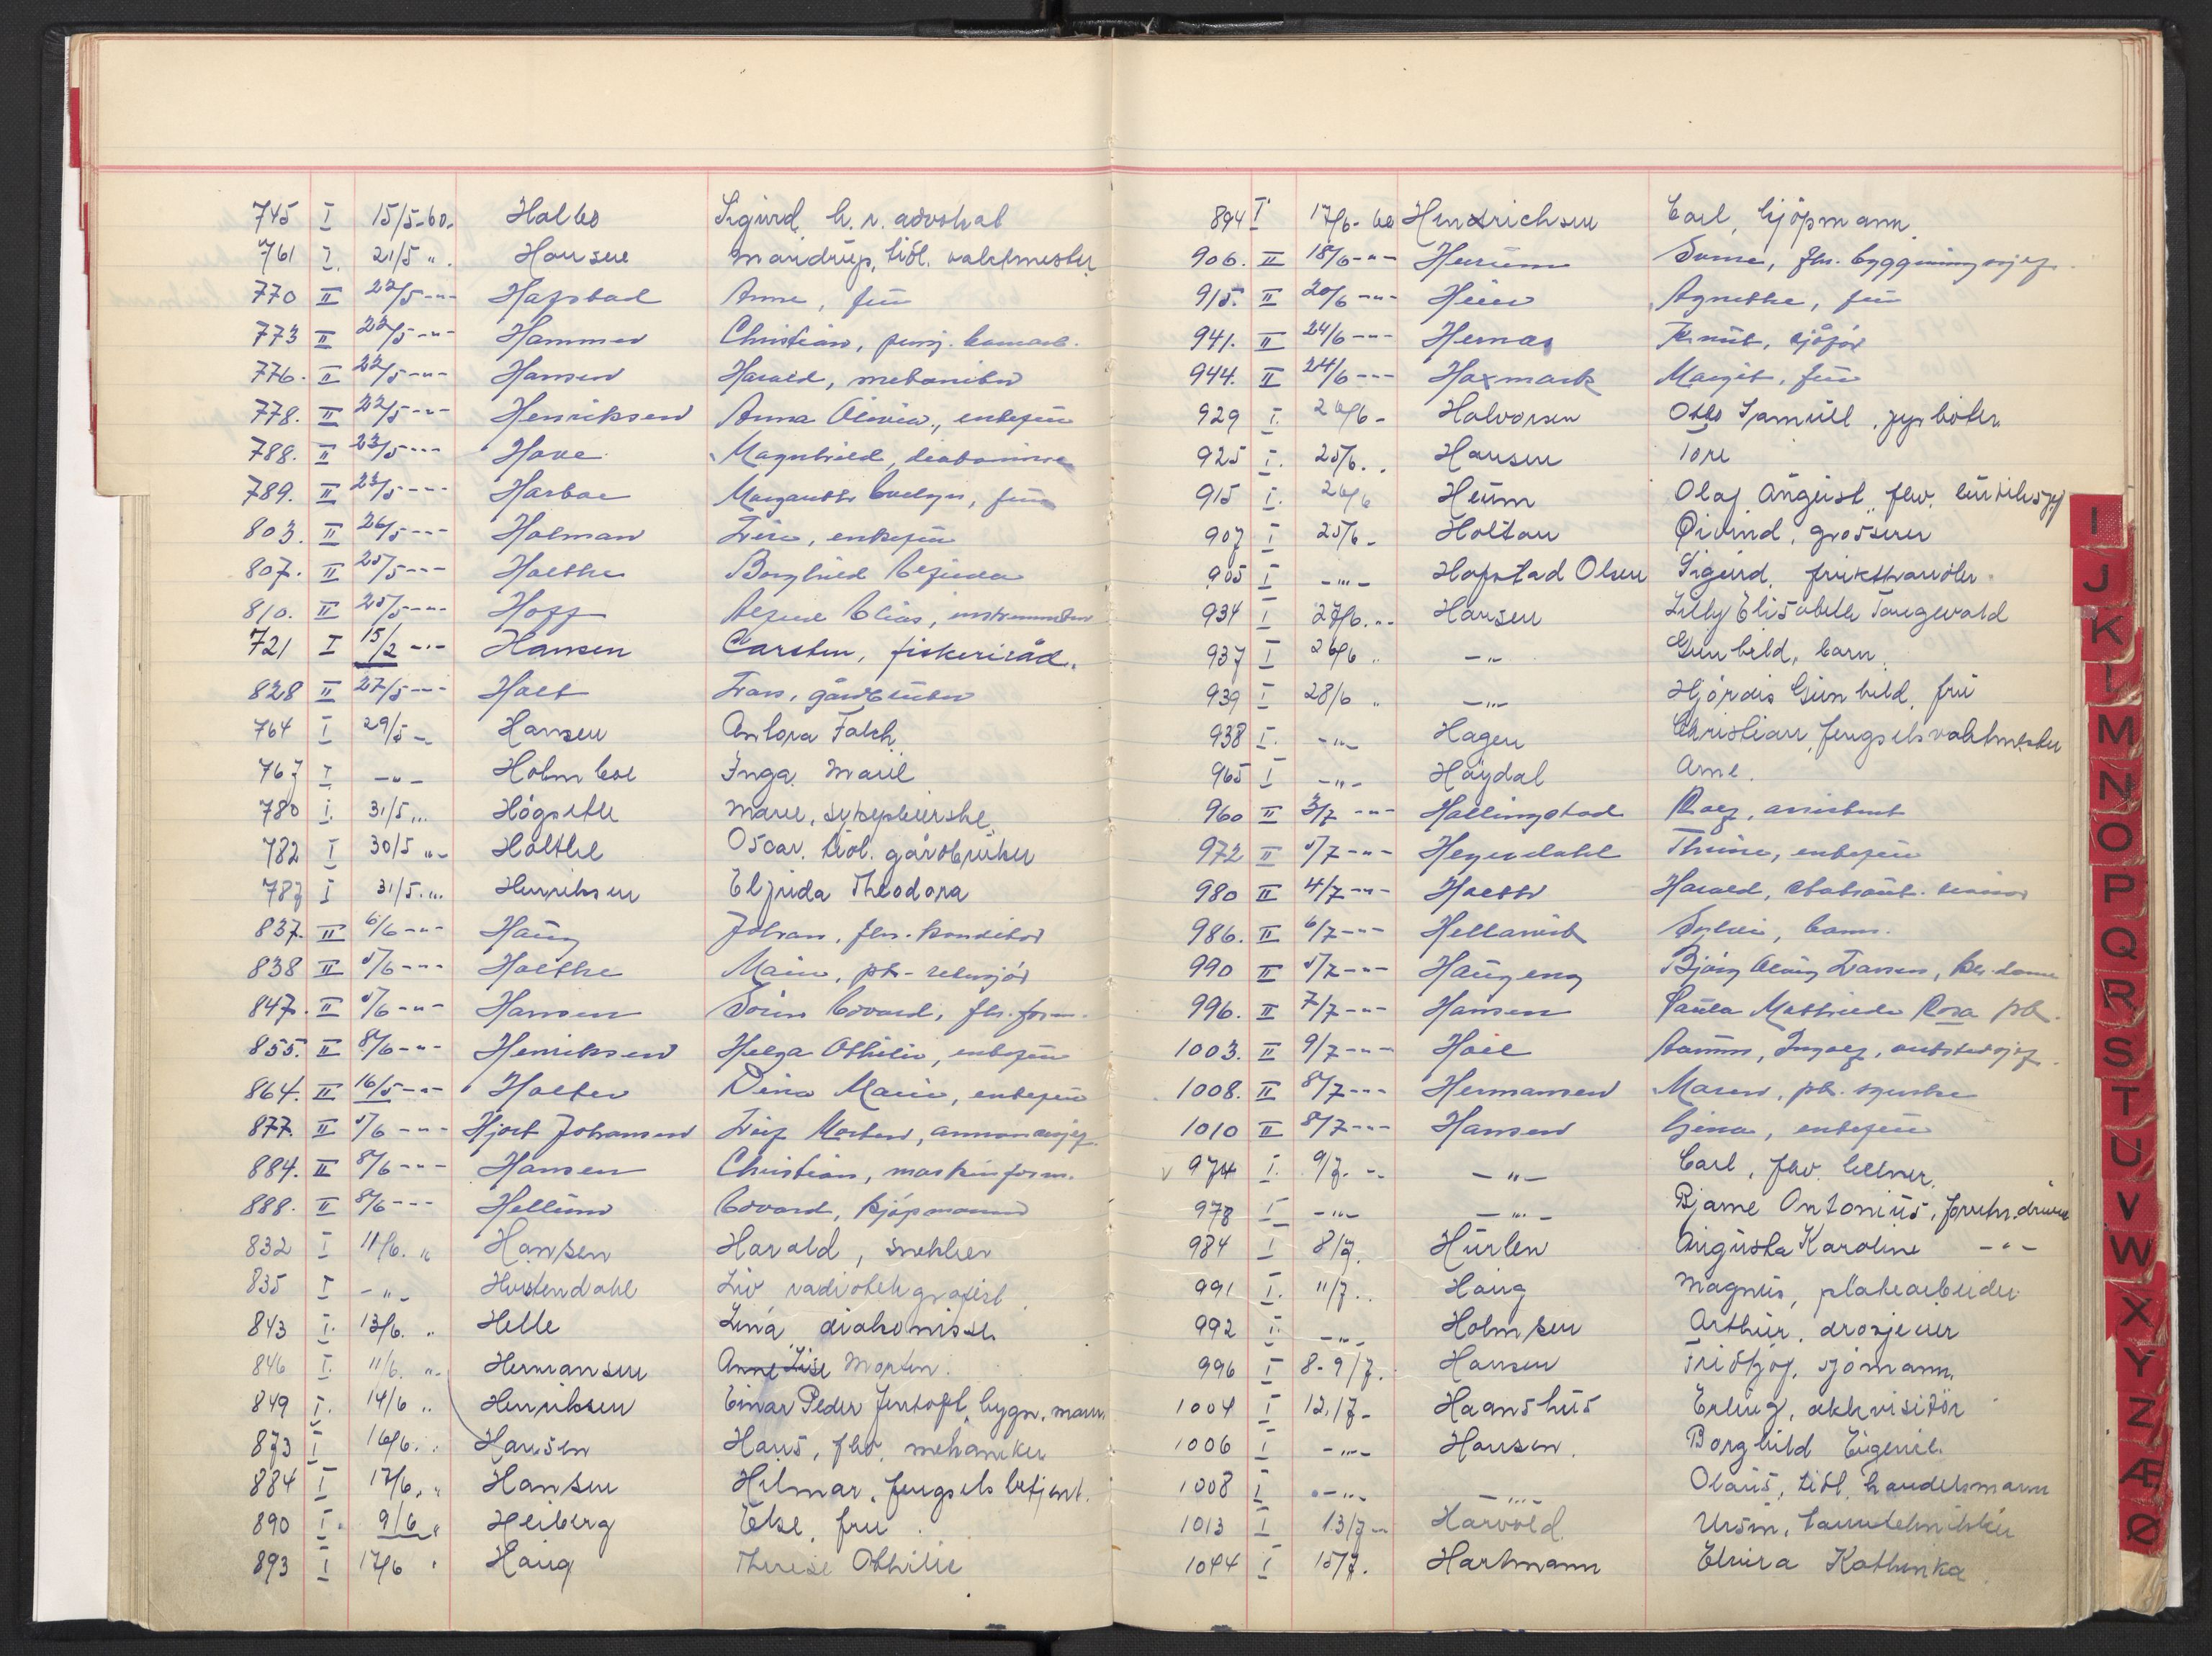 745 I 15/5-60. Holbo Sigurd, h.r. advokat
761 I. 21/5 ". Hansen Mandrup, tidl. vaktmester
770 II 22/5 -"- Hafstad Anne, fru
773 II 22/5 -"- Hammer Christian,
776. II 22/5 -"- Hansen Harald, mekaniker
778. II 22/5 -"- Henriksen Anna Olivia, enkefru
788. II 23/5 -"- Hove Magnhild, diakonisse
789. II 23/5 -"- Harboe Margarethe Evelyn, frue
803. II 26/5 -"- Holman enkefru
807. II 25/5 -"- Holthe Borghild
810. II 25/5 -"- Hoff Elias,
721 I 15/2 -"- Hansen Carsten, fiskeriråd.
828 II 27/5 -"- Holt Frans, gårdbruker
764 I 29/5 - Hansen Antora Falch
767 I -"- Holmboe Inga Marie
780 I. 31/5 " Högsette Marie, sykepleierske
782 I 30/5 " Holthe Oscar, tidl. gårdbruker
787 I 31/5 ." Henriksen Elfrida Theodora
837. II 6/6 -"- Haug Johan, fhv. konditor
838 II 5/6 -"- Holthe Marie, pb. rengjør
847. II 5/6 -"- Hansen Sörin Edvard, fhv. form.
855. II 8/6 -"- Henriksen Helga Othilie, enkefru
864. II 16/5 -"- Holter Dina Marie, enkefru
877. II 5/6 -"- Hjort Johansen Leif Morten, annonsesjef
884. II 8/6 -"- Hansen Christian, maskinform.
888. II 8/6 -"- Hellum Edvard, kjöpmann
832 I 11/6. " Hansen Harald, snekker
835 I -"- Hustendahl Liv radiotelegrafist
843 I. 13/6. " Helle Lina diakonisse
846 I. 11/6. " Hermansen Anne Lise Morten.
849 I. 14/6 " Henriksen Einar Peder Jentoft, bygn. mann
873 I 16/6. " Hansen Hans, fhv. mekaniker
884 I 17/6. " Hansen Hilmar, fengselsbetjent.
890 I. 9/6 " Heiberg Else, fru
893 I 17/6 " Haug Therese Othilie
894 I 17/6- 60 Hendrichsen Carl, kjöpmann
906. II 18/6 -"- Herum fhv. bygningssjef
915. II 20/6 -"- Agnethe, fru
941. II 24/6 -"- Hernas Knut, sjåför
944. II 24/6 -"- Haxmark Margit, frue
929 I. 24/6 - Halvorsen Otto Samuel,
925 I. 25/6 . . Hansen Tore
915 I. 26/6 Heum Olaf August, fhv.
907 I 25/6 - Holtan Øivind, grosserer
905 I -"- Hafstad Olsen Sigurd, frukthandler
934 I 27/6 ." Hansen Lilly Elisabeth Tangevald
937 I 26/6 " -"- Gunhild, barn.
939 I 28/6 " -"- Hjördis Gunhild, fru
938 I. -"- Hagen Christian, fengselsvaktmester
965 I -"- Höydal Arne.
960 II 3/7 -"- Hallingstad Rolf, assistent
972 II 5/7 -"- Heyerdahl Thrine, enkefru
980 II 4/7 -"- Holth Harald,
986. II 6/7 -"- Hellarvik barn.
990 II 5/7 -"- Haugeng Bjørg
996. II 7/7 -"- Hansen Paula Mathilde Rosa pb.
1003. II 9/7 -"- Hoel Ingolf,
1008. II 8/7 -"- Hermansen Maren, pb. syerske
1010 II 8/7 -"- Hansen Gina, enkefru
v 974 I. 9/7. -. -"- Carl, fhv. kelner.
978 I -"- -"- Bjarne Antonius,
984 I 8/7. Hurlen Augusta Karoline -"-
991 I. 11/7.. Haug Magnus, platearbeider
992 I. -"- Holmsen Arthur, drosjeeier
996 I 8-9/7. Hansen Fridtjof, sjömann.
1004 I 12./7- Haanshus Erling, akkvisitör
1006 I -"- Hansen. Borghild Eugenie.
1008 I -"- -"- Olaus, tidl. handelsmann
1013 I 13/7 - Harvold tanntekniker
1044 I 15/7. Hartmann Elvira Kathinka
I
J
K
L
M
N
O
P
Q
R
S
T
U
V
W
X
Y
Z
Æ
Ø